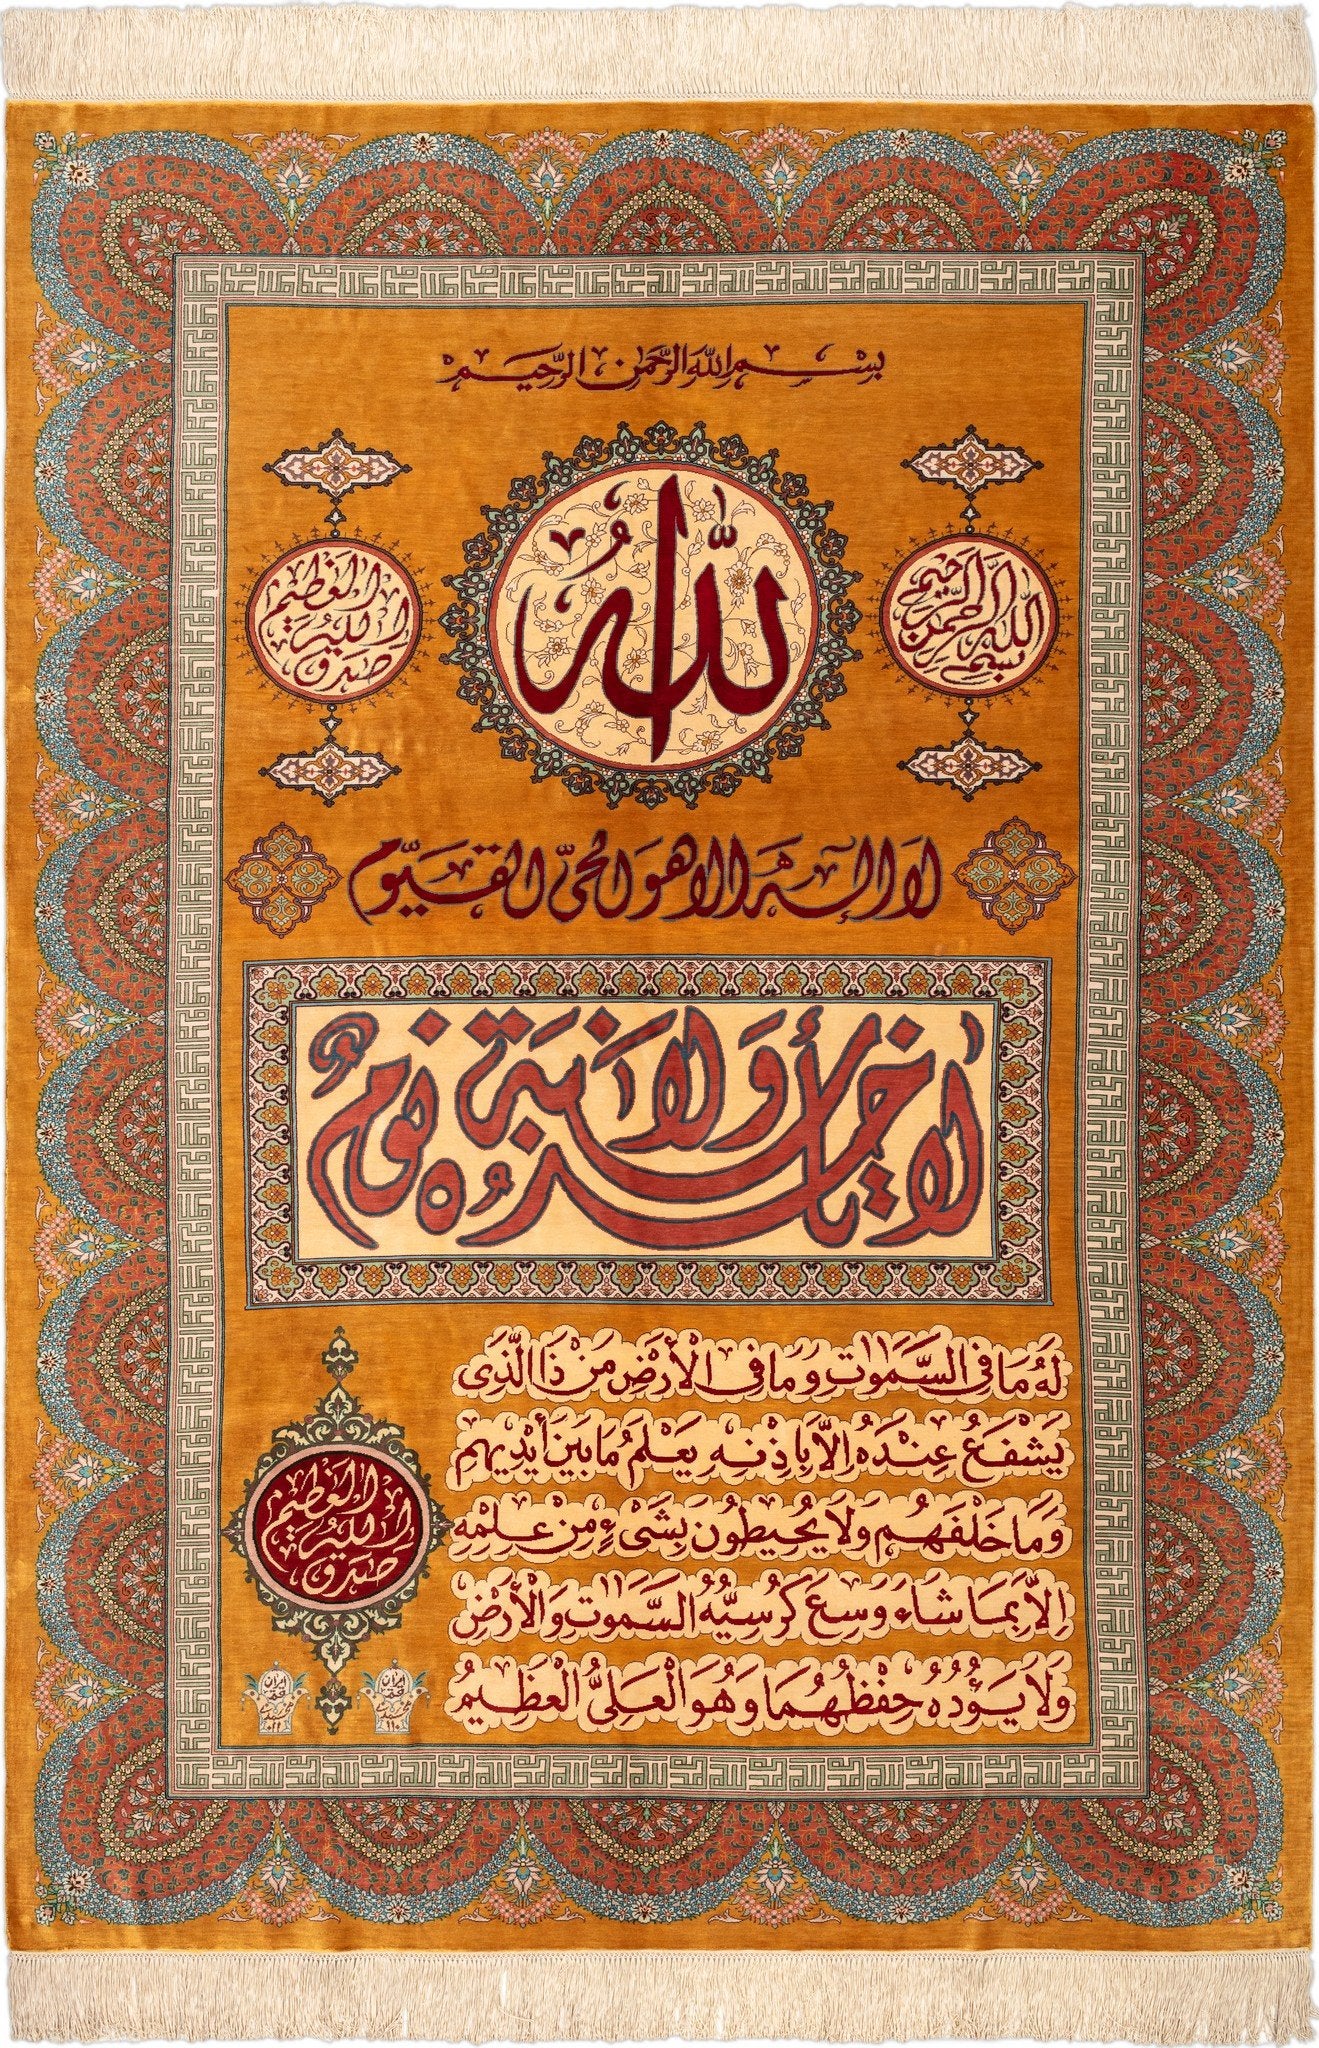 بِسْمِ اللهِ الرَّحْمٰنِ الرَّحِيمِ
بسم الله الرحمن الرحيم
اللهُ
صدق الله العلي العظيم
لا اله الا هو الحيّ القيّوم
لا تأخذه سنة ولا نومٌ
لَهُ مَا فِي السَّمٰوٰتِ وَمَا فِي الْأَرْضِ مَنْ ذَا الَّذِي
يَشْفَعُ عِنْدَهُ اِلَّا بِاِذْنِهِ يَعْلَمُ مَا بَيْنَ أَيْدِيهِمْ
وَمَا خَلْفَهُمْ وَلَا يُحِيطُونَ بِشَيْءٍ مِنْ عِلْمِهِ
اِلَّا بِمَا شَاءَ وَسِعَ كُرْسِيُّهُ السَّمٰوٰتِ وَالْأَرْضَ
وَلَا يَؤُدُهُ حِفْظُهُمَا وَهُوَ الْعَلِيُّ الْعَظِيمُ
صدق الله العلي العظيم
ايران
قم
ايران
قم